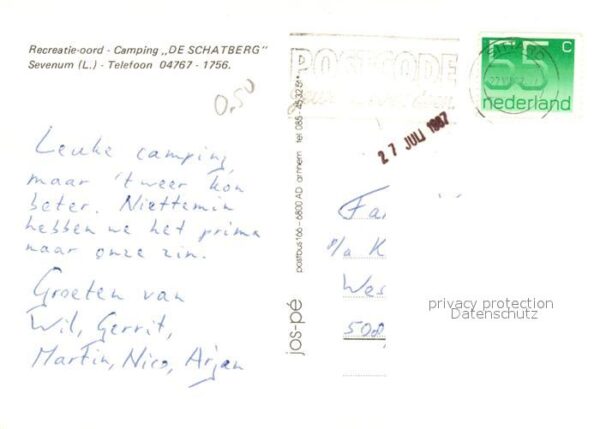 Recreatie-oord - Camping „DE SCHATBERG"
Sevenum (L.) - Telefoon 04767 - 1756.
0.50
Leuke camping,
maar 't weer kon
beter. Niettemin
hebben we het prima
naar onze zin.
Groeten van
Wil, Gerrit,
Martin, Nico, Arjan
jos-pé
postbus 166 - 6800 AD arnhem
POSTCODE
55 c
nederland
27 JULI 1987
Fa
p/a K
Wes
privacy protection
Datenschutz